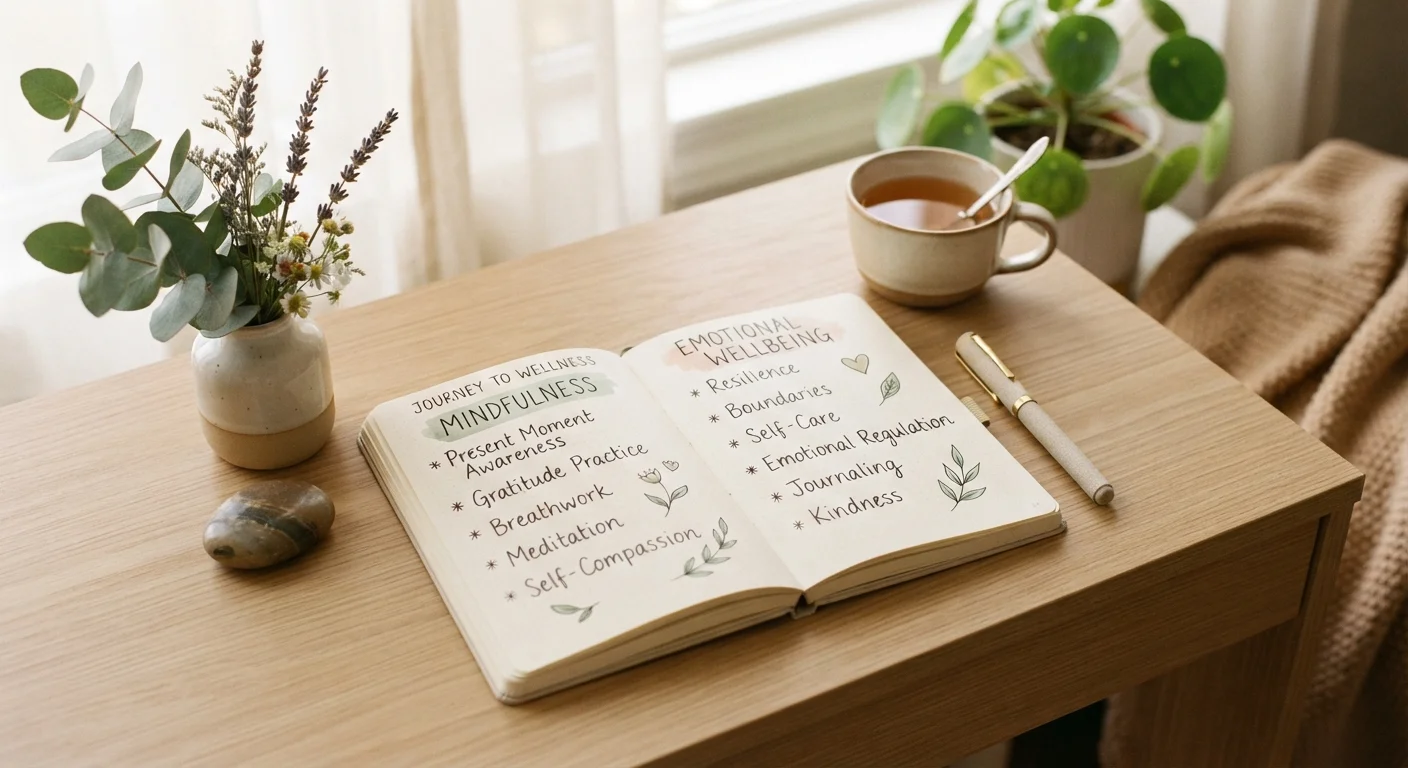 JOURNEY TO WELLNESS
MINDFULNESS
* Present Moment
Awareness
* Gratitude Practice
* Breathwork
* Meditation
* Self-Compassion
EMOTIONAL
WELLBEING
* Resilience
* Boundaries
* Self-Care
* Emotional Regulation
* Journaling
* Kindness